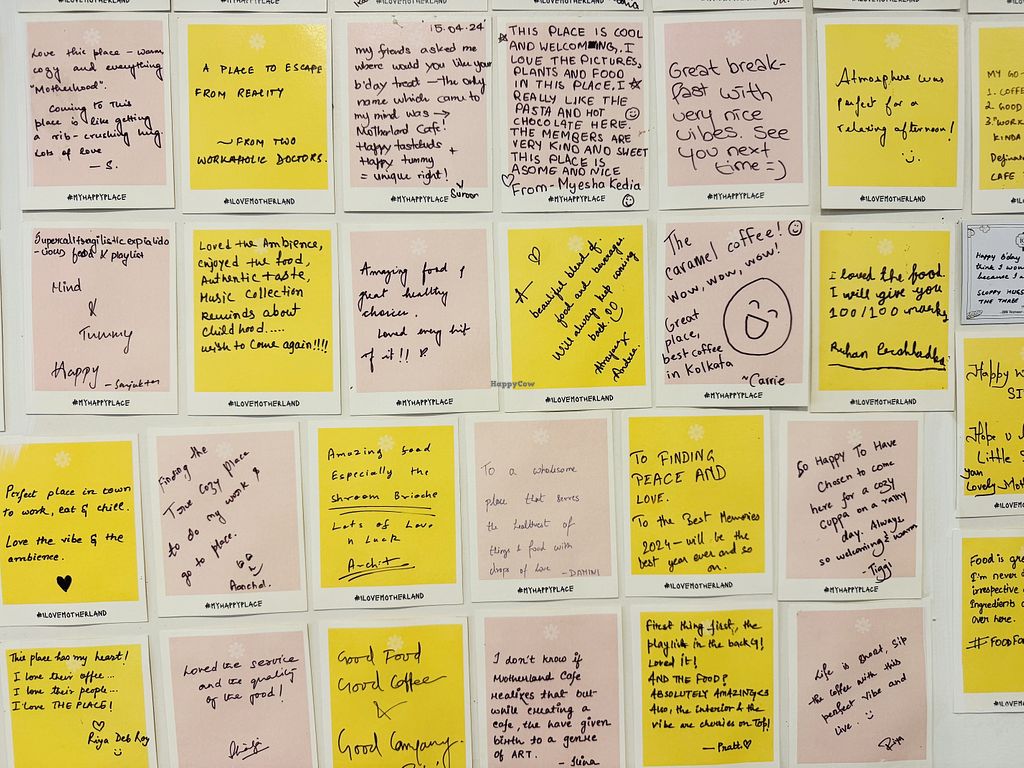 #MYHAPPYPLACE
Love this place - warm,
cozy and everything
"Motherhood".
Coming to this
place is like getting
a rib-crushing hug.
Lots of love
- S.
#MYHAPPYPLACE
A PLACE TO ESCAPE
FROM REALITY
~ FROM TWO
WORKAHOLIC DOCTORS.
#ILOVEMOTHERLAND
15.04.24'
my friends asked me
where would you like your
b'day treat - the only
name which came to
my mind was →
Motherland Cafe!
Happy tastebuds
+
Happy tummy
= unique right!
#MYHAPPYPLACE
THIS PLACE IS COOL
AND WELCOMING, I
LOVE THE PICTURES,
PLANTS AND FOOD
IN THIS PLACE, I
REALLY LIKE THE
PASTA AND HOT
CHOCOLATE HERE.
THE MEMBERS ARE
VERY KIND AND SWEET
THIS PLACE IS
ASOME AND NICE
From - Myesha Kedia
#MYHAPPYPLACE
Great break-
fast with
very nice
vibes. See
you next
time =)
#MYHAPPYPLACE
Atmosphere was
perfect for a
relaxing afternoon!
#ILOVEMOTHERLAND
MY GO-
1. COFFE
2. GOOD
3. "WORK
KINDA
CAFE
#ILOVEM
Supercalifragilisticexpialido
-cious food & playlist
Mind
&
Tummy
Happy
#MYHAPPYPLACE
Loved the Ambience,
enjoyed the food,
Authentic taste,
Music Collection
Reminds about
childhood.....
wish to come again!!!!
#ILOVEMOTHERLAND
Amazing food &
great healthy
choices.
Loved every bit
of it!!
#MYHAPPYPLACE
A
beautiful blend of
food and
Will always keep coming
back.
Andrea.
HappyCow
#ILOVEMOTHERLAND
The
caramel coffee!
Wow, wow, wow!
Great
place,
best coffee
in Kolkata
~Carrie
#MYHAPPYPLACE
I loved the food.
I will give you
100/100 marks
#ILOVEMOTHERLAND
Happy b'day
think I wou
because I a
SLOPPY HUGS
THE THREE
Happy W
Hope u
Little S
Your
Lovely
#ILOVEM
Perfect place in town
to work, eat & chill.
Love the vibe & the
ambience.
#ILOVEMOTHERLAND
Finding the
True cozy place
to do my work &
go to place.
Aanchal.
#MYHAPPYPLACE
Amazing food
Especially the
shroom Brioche
Lots of Love
n Luck
Archit
#ILOVEMOTHERLAND
To a wholesome
place that serves
the healthiest of
things & food with
drops of love - DAMINI
#MYHAPPYPLACE
TO FINDING
PEACE AND
LOVE.
To the Best Memories
2024 - will be the
best year ever and so
on.
#ILOVEMOTHERLAND
So Happy To Have
chosen to come
here for a cozy
cuppa on a rainy
day. Always
so welcoming & warm
- Tiggi
#MYHAPPYPLACE
Food is gre
I'm never
irrespective
Ingredients
over here.
#FOODFO
#ILOVEM
This place has my heart!
I love their coffee...
I love their people...
I Love THE PLACE!
Riya Deb Roy
Loved the service
and the quality
of the food!
Good Food
Good Coffee
&
Good Company.
I don't know if
Motherland Cafe
realizes that but
while creating a
cafe, the have given
birth to a genre
of ART.
First thing first, the
playlist in the back!
Loved it!
AND THE FOOD?
ABSOLUTELY AMAZING
Also, the interior & the
vibe are cherries on Top!
- Pratt.
Life is short, Sip
the coffee with this
perfect vibe and
live.
Riya